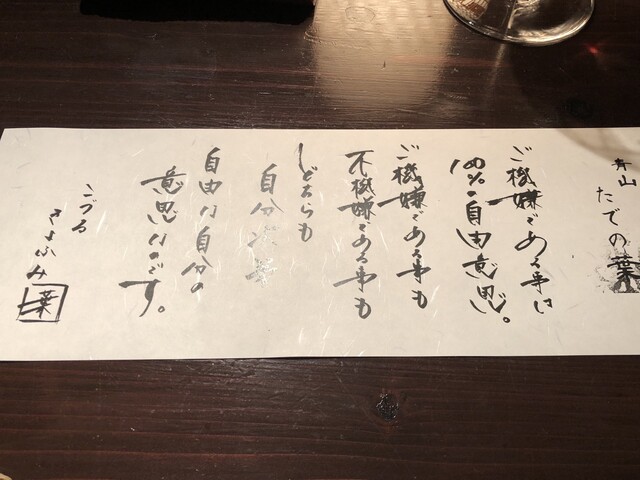 青山
たでの葉
ご機嫌である事は
100%の自由意思。
ご機嫌である事も
不機嫌である事も
どちらも
自分次第
自由な自分の
意思なのです。
こづる
さよふみ
葉